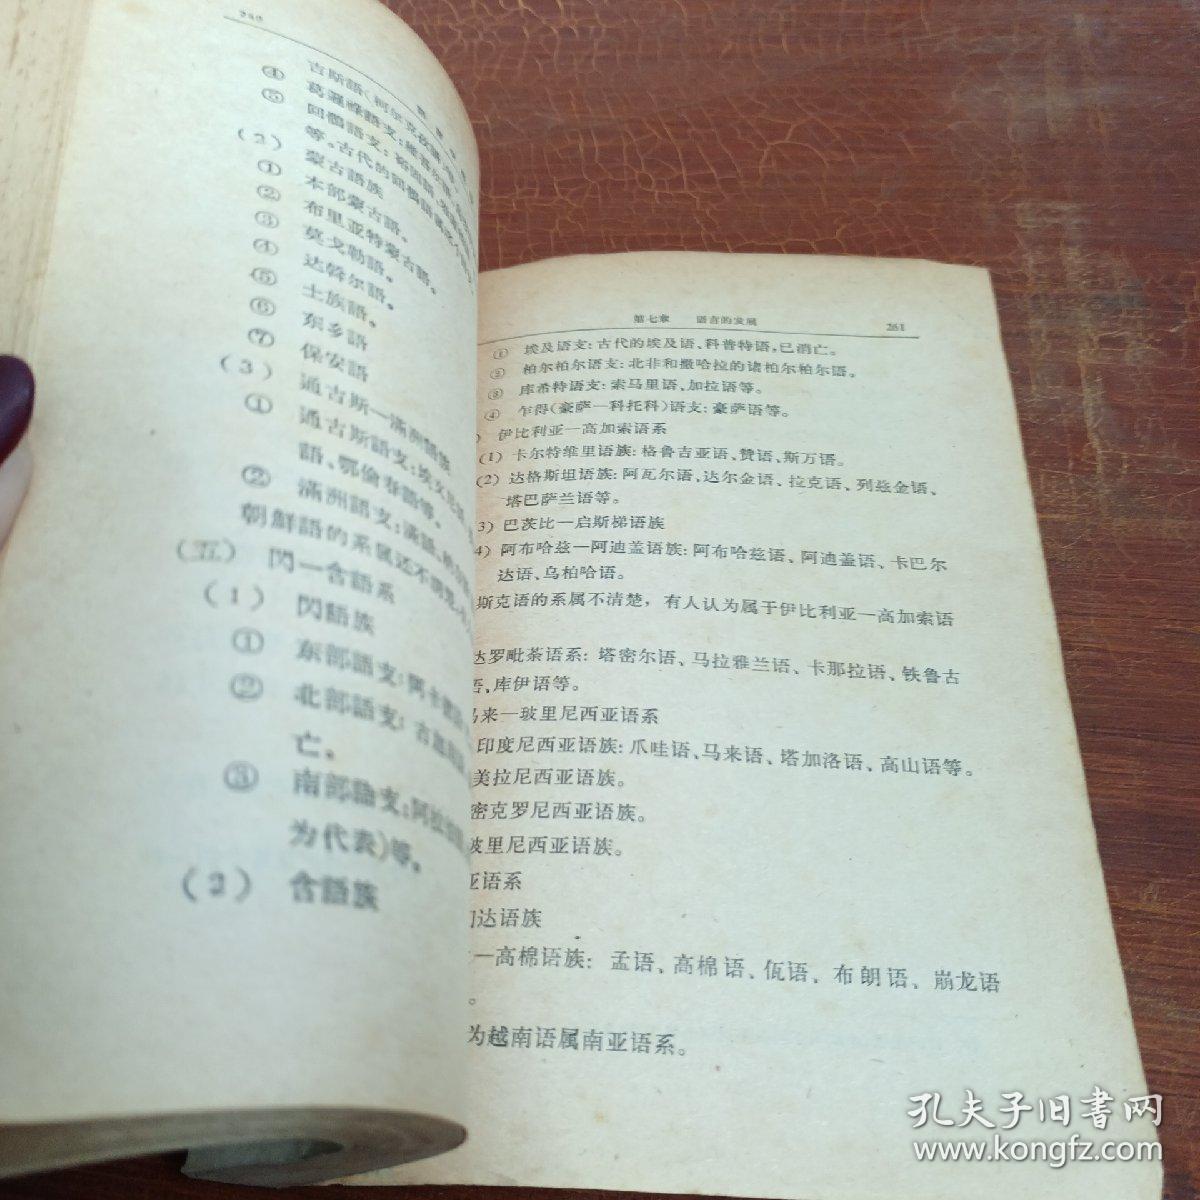 吉斯語(柯尔克孜語)
④ 葛邏祿語支：維吾尔語
⑤ 回鶻語支：裕固語
等。古代的回鶻語
(2) 蒙古語族
① 本部蒙古語。
② 布里亚特蒙古語。
③ 莫戈勒語。
④ 达斡尔語。
⑤ 土族語。
⑥ 东乡語
⑦ 保安語
(3) 通古斯—滿洲語族
① 通古斯語支：埃文尼
語、鄂倫春語等。
② 滿洲語支：滿語、
朝鮮語的系属还不
(五) 閃—含語系
(1) 閃語族
① 东部語支：阿卡德
② 北部語支：古
亡。
③ 南部語支：阿拉
为代表)等。
(2) 含語族
第七章 语言的发展 261
① 埃及语支：古代的埃及语、科普特语，已消亡。
② 柏尔柏尔语支：北非和撒哈拉的诸柏尔柏尔语。
③ 库希特语支：索马里语、加拉语等。
④ 乍得(豪萨—科托科)语支：豪萨语等。
) 伊比利亚—高加索语系
(1) 卡尔特维里语族：格鲁吉亚语、赞语、斯万语。
(2) 达格斯坦语族：阿瓦尔语、达尔金语、拉克语、列兹金语、
塔巴萨兰语等。
3) 巴茨比—启斯梯语族
4) 阿布哈兹—阿迪盖语族：阿布哈兹语、阿迪盖语、卡巴尔
达语、乌柏哈语。
斯克语的系属不清楚，有人认为属于伊比利亚—高加索语
达罗毗荼语系：塔密尔语、马拉雅兰语、卡那拉语、铁鲁古
语、库伊语等。
马来—玻里尼西亚语系
印度尼西亚语族：爪哇语、马来语、塔加洛语、高山语等。
美拉尼西亚语族。
密克罗尼西亚语族。
玻里尼西亚语族。
亚语系
达语族
—高棉语族：孟语、高棉语、佤语、布朗语、崩龙语
。
为越南语属南亚语系。
孔夫子旧书网
www.kongfz.com